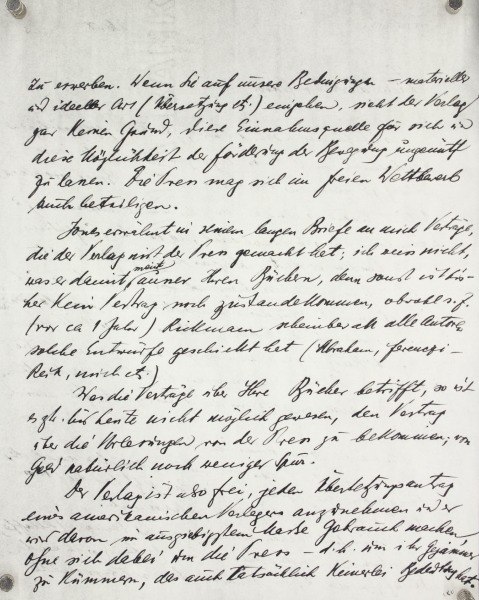 zu erwerben. Wenn Sie auf unsere Bedingungen – materieller
u ideeller Art (Übersetzung etc.) eingehen, sieht der Verlag
gar keinen Grund, diese Einnahmsquelle für sich u
diese Möglichkeit der Förderung der Bewegung ungenützt
zu lassen. Die Press mag sich im freien Wettbewerb
auch beteiligen.
Jones erwähnt in seinem langen Briefe an mich Verträge,
die der Verlag mit der Press gemacht hat; ich weiss nicht,
was er damit meint ausser Ihren Büchern, denn sonst ist bis-
her kein Vertrag noch zustandekommen, obwohl s. z.
(vor ca 1 Jahr) Rickmann scheinbar an alle Autoren
solche Entwürfe geschickt hat (Abraham, Ferenczi–
Reik, mich etc.)
Was die Verträge über Ihre Bücher betrifft, so ist
es bis heute nicht möglich gewesen, den Vertrag
über die Vorlesungen von der Press zu bekommen, von
Geld natürlich noch weniger Spur.
Der Verlag ist also frei, jeden Übersetzungsantrag
eines amerikanischen Verlegers anzunehmen u er
wird davon in ausgiebigstem Masse Gebrauch machen,
ohne sich dabei um die Press – d. h. um ihr Gejammer
zu kümmern, das auch tatsächlich keinerlei Bedeutung hat.